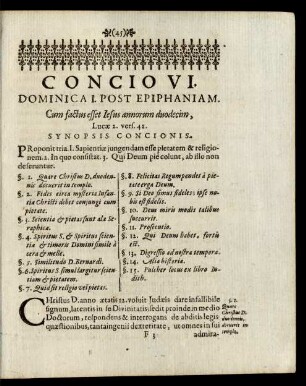 (45)
CONCIO VI.
DOMINICA I. POST EPIPHANIAM.
Cum factus esset Iesus annorum duodecim,
Lucæ 2. vers. 42.
SYNOPSIS CONCIONIS.
PRoponit tria. 1. Sapientiæ jungendam esse pietatem & religio-
nem. 2. In quo consistat. 3. Qui Deum piè colunt, ab illo non
deseruntur.
§. 1. Quare Christus D. duode-
nis docuerit in templo.
§. 2. Fides circa mysteria Infan-
tis Christi debet conjungi cum
pietate.
§. 3. Scientia & pietas sunt alæ Se-
raphicæ.
§. 4. Spiritus S. & Spiritus scien-
tiæ & timoris Domini simile à
cera & melle.
§. 5. Similitudo D. Bernardi.
§. 6. Spiritus S. simul largitur scien-
tiam & pietatem.
§. 7. Quid sit religio vel pietas.
§. 8. Felicitas Regum pendet à pie-
tate erga Deum.
§. 9. Si Deo simus fideles: ipse no-
bis est fidelis.
§. 10. Deus miris modis talibus
succurrit.
§. 11. Prosecutio.
§. 12. Qui Deum habet, fortis
est.
§. 13. Digressio ad nostra tempora.
§. 14. Alia historia.
§. 15. Pulcher locus ex libro Ju-
dith.
CHristus D. anno ætatis 12. voluit Judæis dare infallibile
signum, latentis in se Divinitatis: sedit proinde in medio
Doctorum, respondens & interrogans de abditis legis
quæstionibus, tanta ingenii dexteritate, ut omnes in sui
F 3 admira-
§. 1.
Quare
Christus D.
duodennis,
docuerit in
templo.